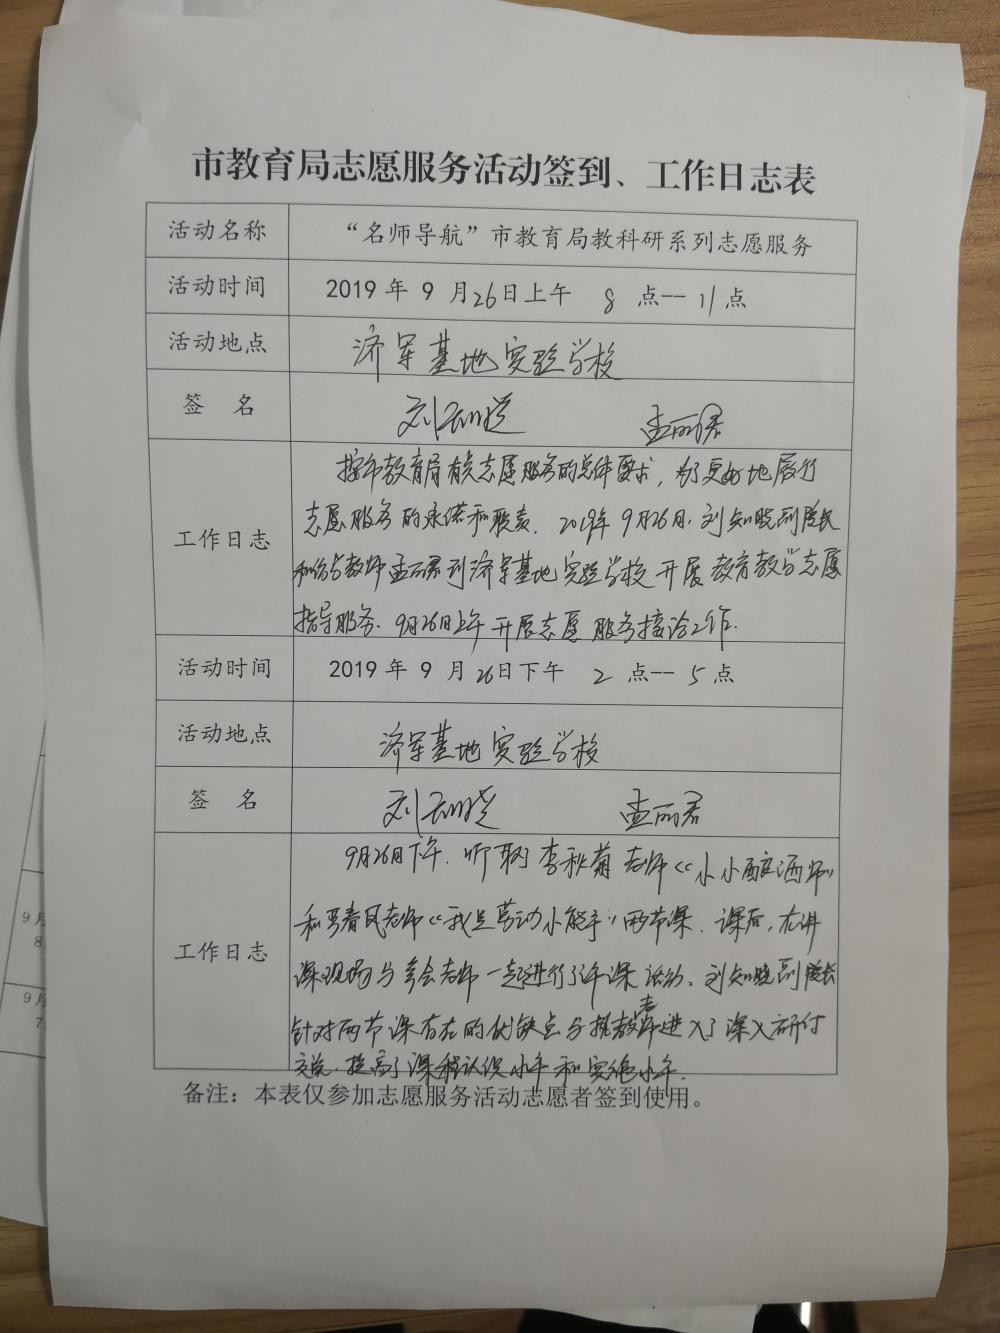 市教育局志愿服务活动签到、工作日志表
活动名称 “名师导航”市教育局教科研系列志愿服务
活动时间 2019年9月26日上午 8点--11点
活动地点 济军基地实验学校
签 名 刘知晓 孟丽君
按市教育局有关志愿服务的总体要求，为了更好地履行
志愿服务的承诺和职责，2019年9月26日，刘知晓副院长
工作日志 教师孟丽君到济军基地实验学校开展教育教学志愿
指导服务。9月26日上午开展志愿服务接洽工作.
活动时间 2019年9月26日下午 2点--5点
活动地点 济军基地实验学校
签 名 刘知晓 孟丽君
9月26日下午，听取李秋菊老师《小小酿酒师》
和 春风老师《我是劳动小能手》两节课，课后，在讲
工作日志 课现场与参会老师一起进行了评课活动，刘知晓副院长
针对两节课存在的优缺点与执教老师进入了深入研讨
交流，提高了课程认识水平和实施水平.
备注：本表仅参加志愿服务活动志愿者签到使用。
9月
8
9月
7